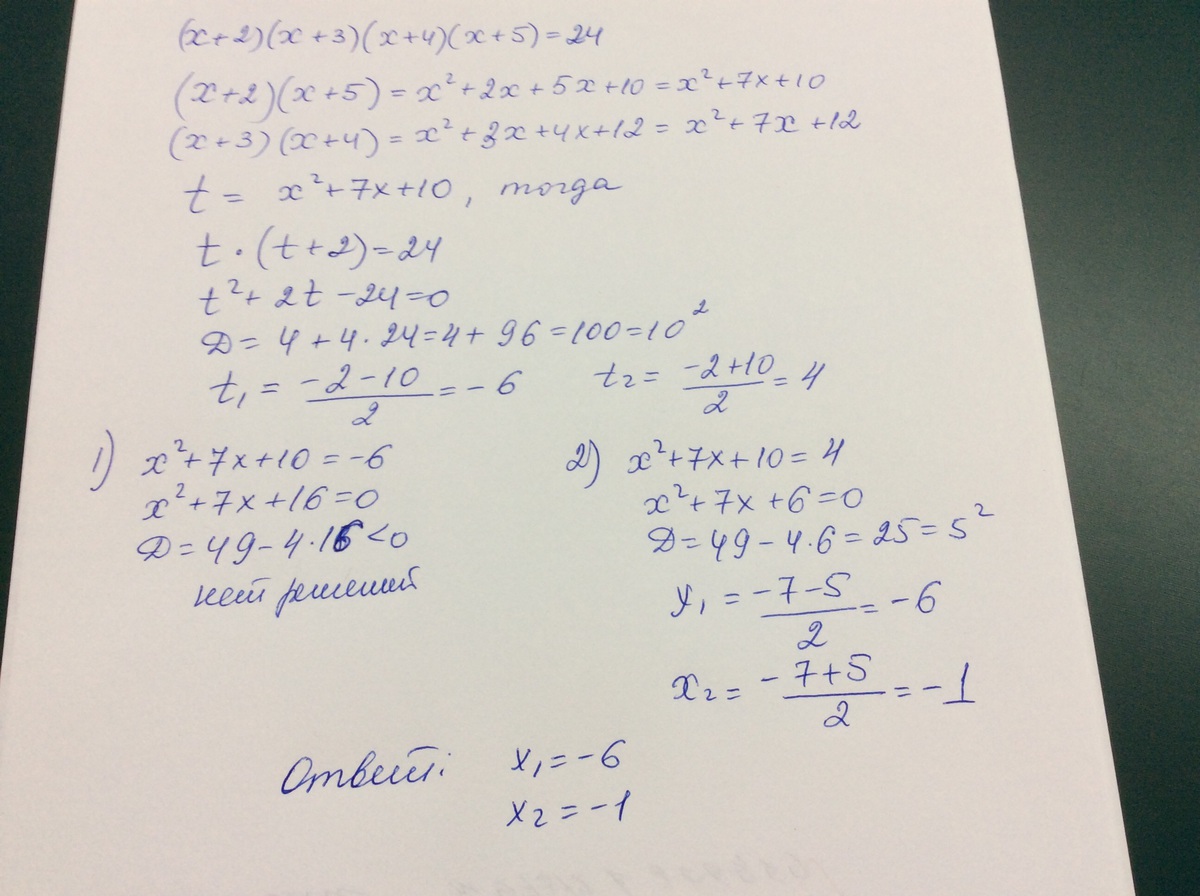 (x+2)(x+3)(x+4)(x+5)=24
(x+2)(x+5)=x²+2x+5x+10=x²+7x+10
(x+3)(x+4)=x²+3x+4x+12=x²+7x+12
t= x²+7x+10, тогда
t·(t+2)=24
t²+2t-24=0
D=4+4·24=4+96=100=10²
t₁=(-2-10)/2=-6 t₂=(-2+10)/2=4
1) x²+7x+10=-6
x²+7x+16=0
D=49-4·16<0
нет решений
2) x²+7x+10=4
x²+7x+6=0
D=49-4·6=25=5²
x₁=(-7-5)/2=-6
x₂=(-7+5)/2=-1
Ответ: x₁=-6
x₂=-1